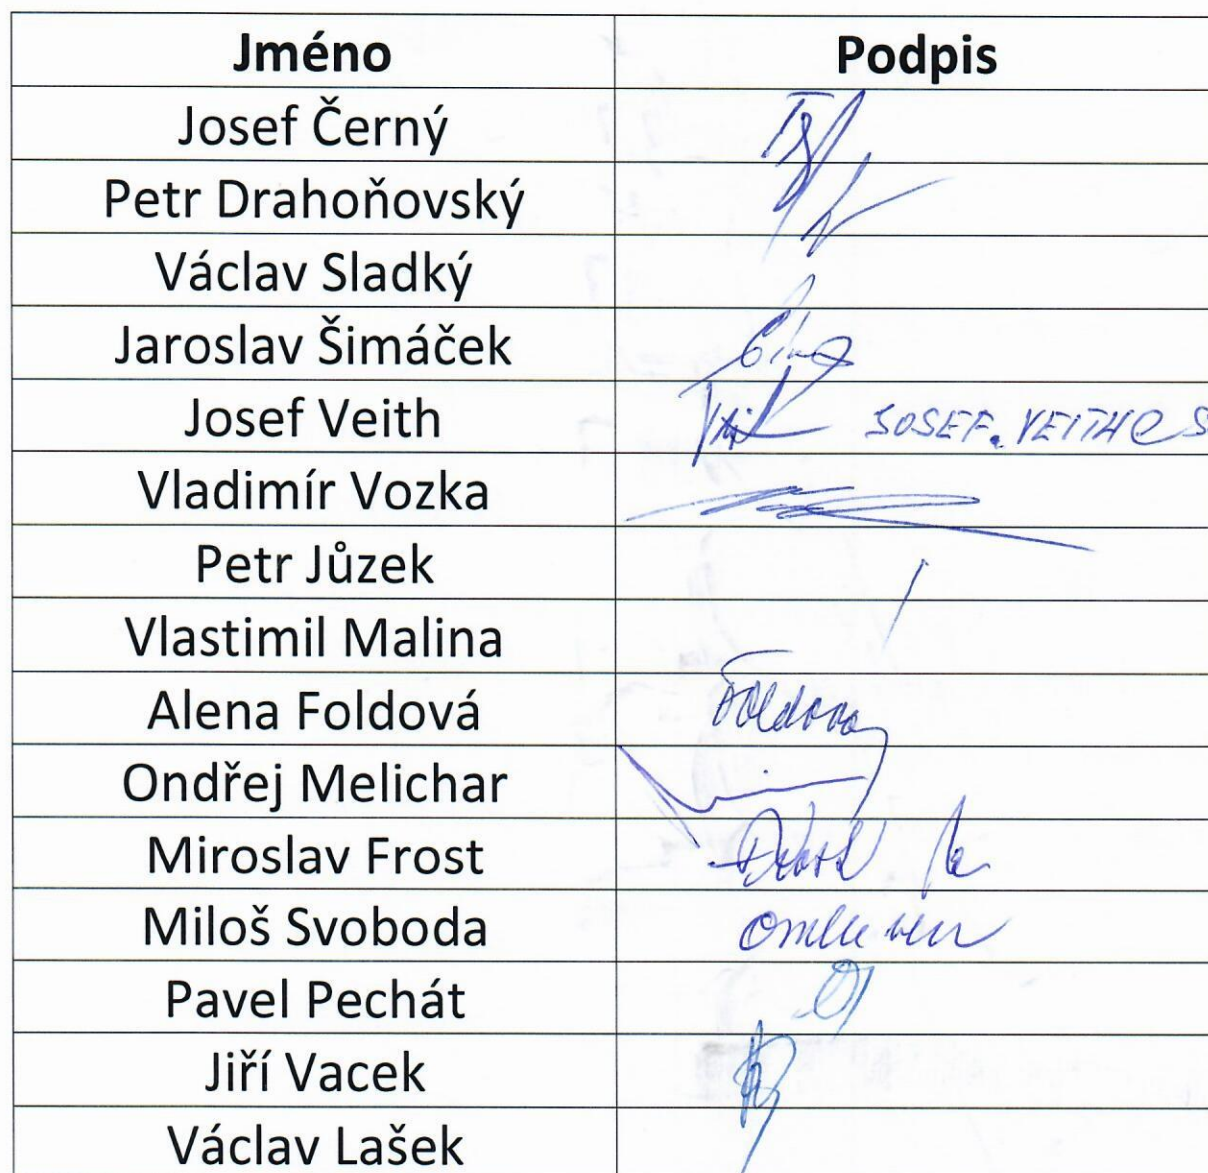 Jméno Podpis
Josef Černý
Petr Drahoňovský
Václav Sladký
Jaroslav Šimáček
Josef Veith JOSEF.VEITH@S
Vladimír Vozka
Petr Jůzek
Vlastimil Malina
Alena Foldová Foldova
Ondřej Melichar
Miroslav Frost
Miloš Svoboda omluven
Pavel Pechát
Jiří Vacek
Václav Lašek